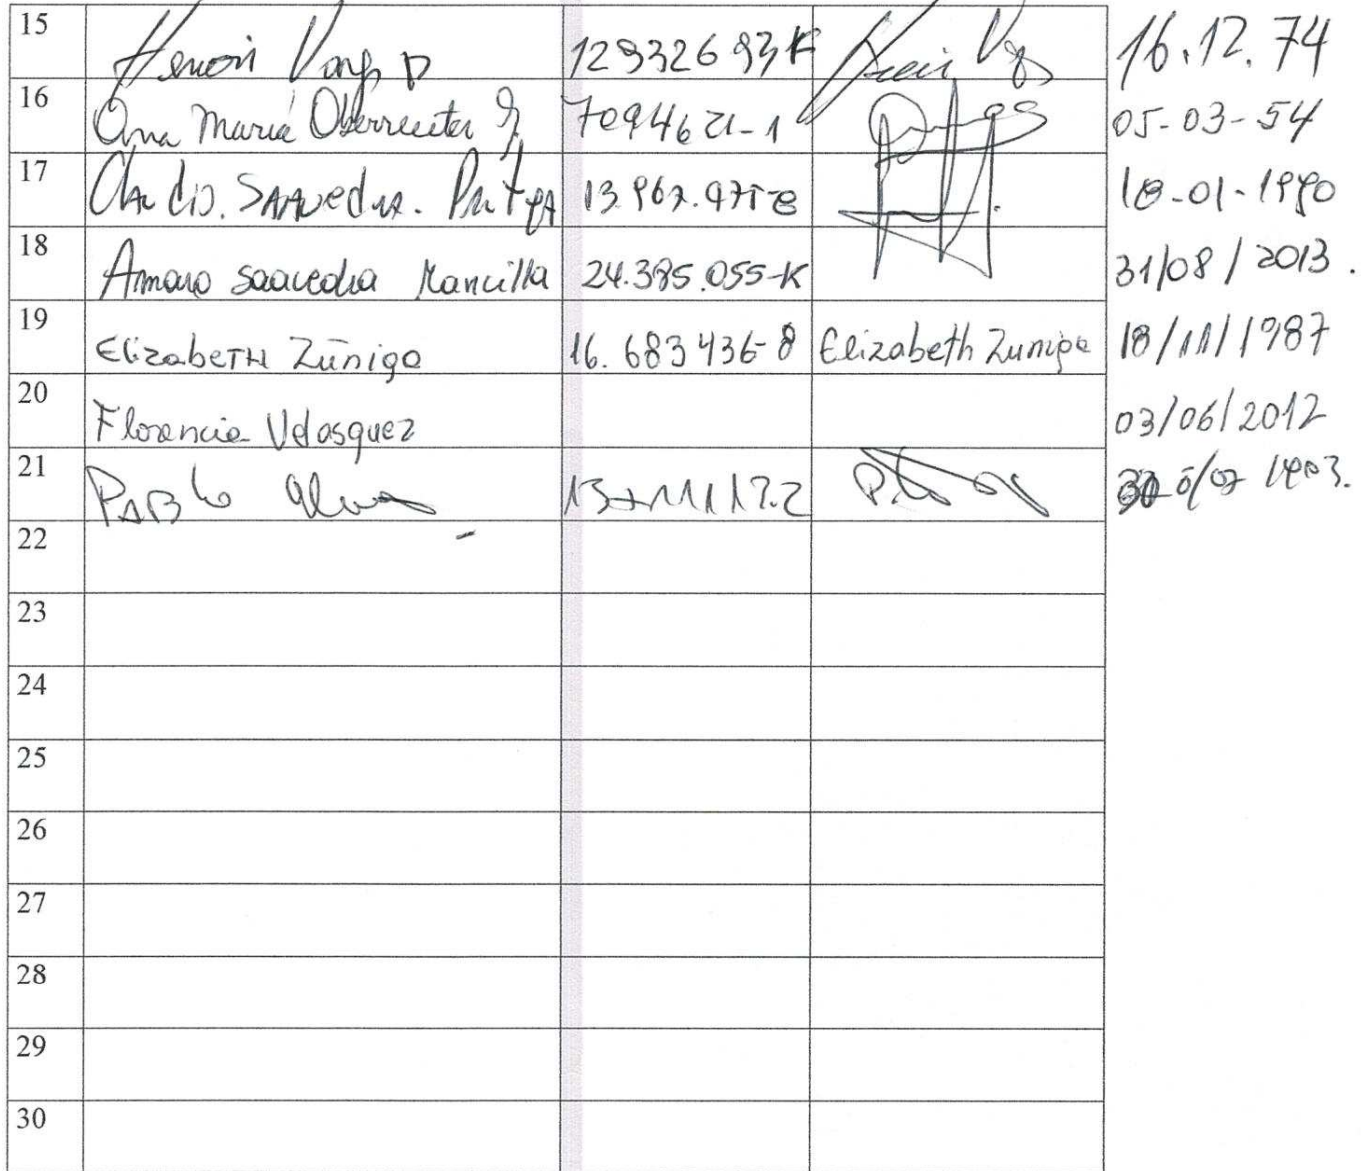 15 Vargas D 12932693K 16.12.74
16 Ana María Oberreuter J. 7094621-1 05-03-54
17 Claudio. Saavedra. 18-01-1980
18 Amaro Saavedra Mancilla 24.385.055-K 31/08/2013.
19 Elizabeth Zúñiga 16.683436-8 Elizabeth Zuniga 18/11/1987
20 Florencia Velasquez 03/06/2012
21 Pablo
22
23
24
25
26
27
28
29
30